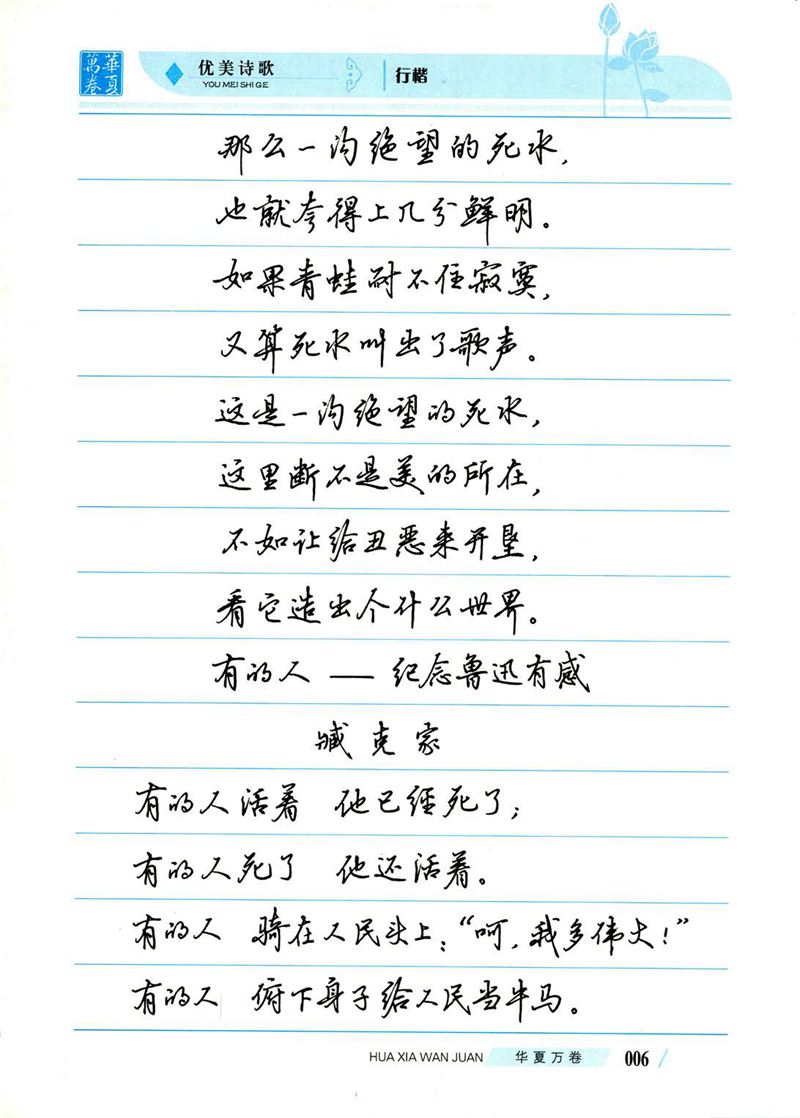 華夏
萬卷
优美诗歌
YOU MEI SHI GE
行楷
那么一沟绝望的死水,
也就夸得上几分鲜明。
如果青蛙耐不住寂寞,
又算死水叫出了歌声。
这是一沟绝望的死水,
这里断不是美的所在,
不如让给丑恶来开垦,
看它造出个什么世界。
有的人 — 纪念鲁迅有感
臧克家
有的人活着 他已经死了;
有的人死了 他还活着。
有的人 骑在人民头上:“呵,我多伟大!”
有的人 俯下身子给人民当牛马。
HUA XIA WAN JUAN 华夏万卷 006